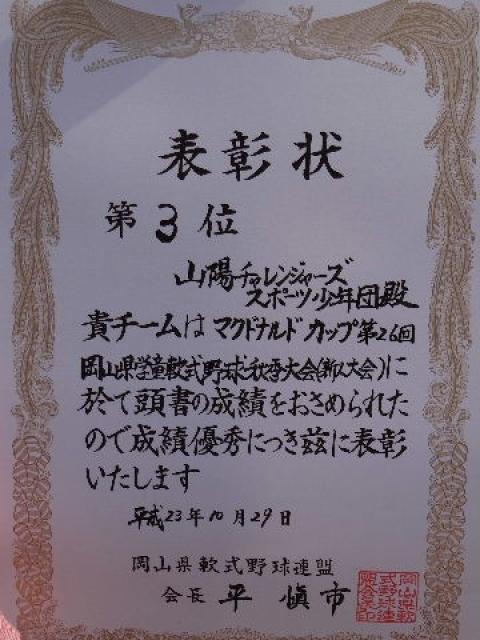 表彰状
第3位
山陽チャレンジャーズ
スポーツ少年団殿
貴チームはマクドナルドカップ第26回
岡山県学童軟式野球秋季大会(新人大会)に
於て頭書の成績をおさめられた
ので成績優秀につき茲に表彰
いたします
平成23年10月29日
岡山県軟式野球連盟
会長 平 慎市